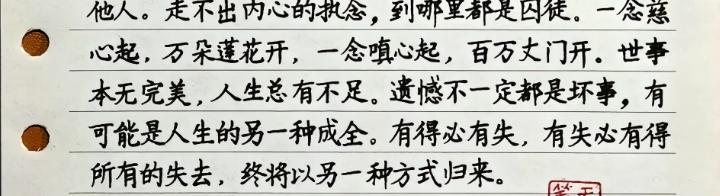 他人。走不出内心的执念，到哪里都是囚徒。一念慈
心起，万朵莲花开，一念嗔心起，百万丈门开。世事
本无完美，人生总有不足。遗憾不一定都是坏事，有
可能是人生的另一种成全。有得必有失，有失必有得
所有的失去，终将以另一种方式归来。